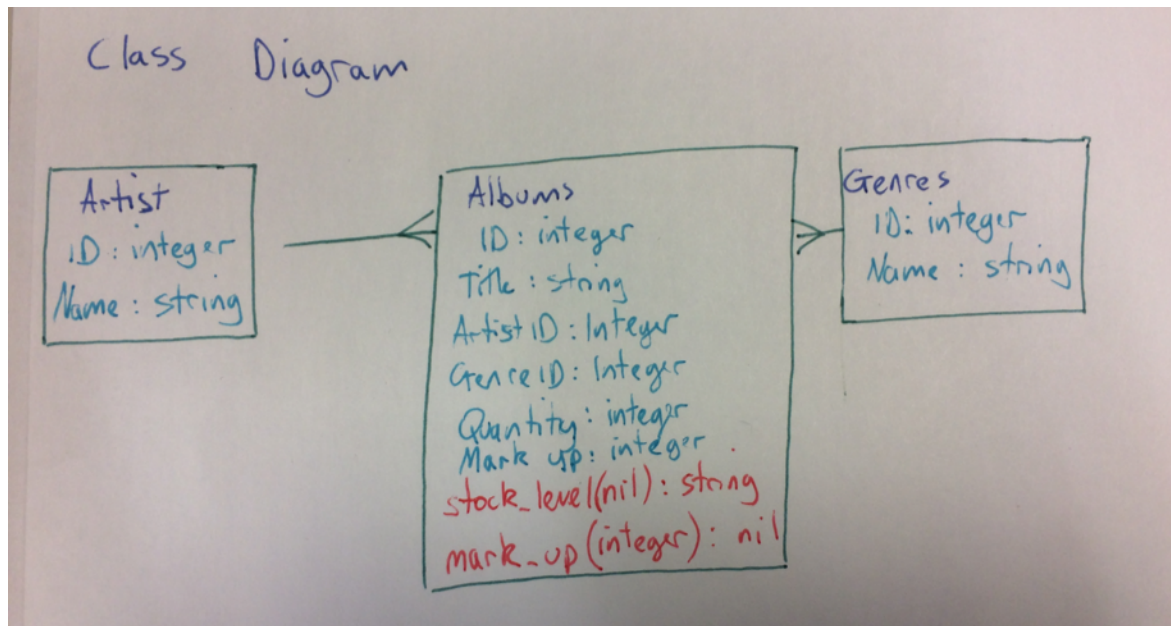 Class Diagram
Artist
ID: integer
Name: string
Albums
ID: integer
Title: string
ArtistID: Integer
GenreID: Integer
Quantity: integer
Mark up: integer
stock_level(nil): string
mark_up(integer): nil
Genres
ID: integer
Name: string